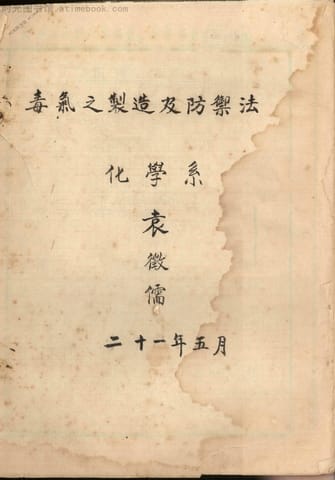 毒氣之製造及防禦法
化學系
袁
徵
儒
二十一年五月